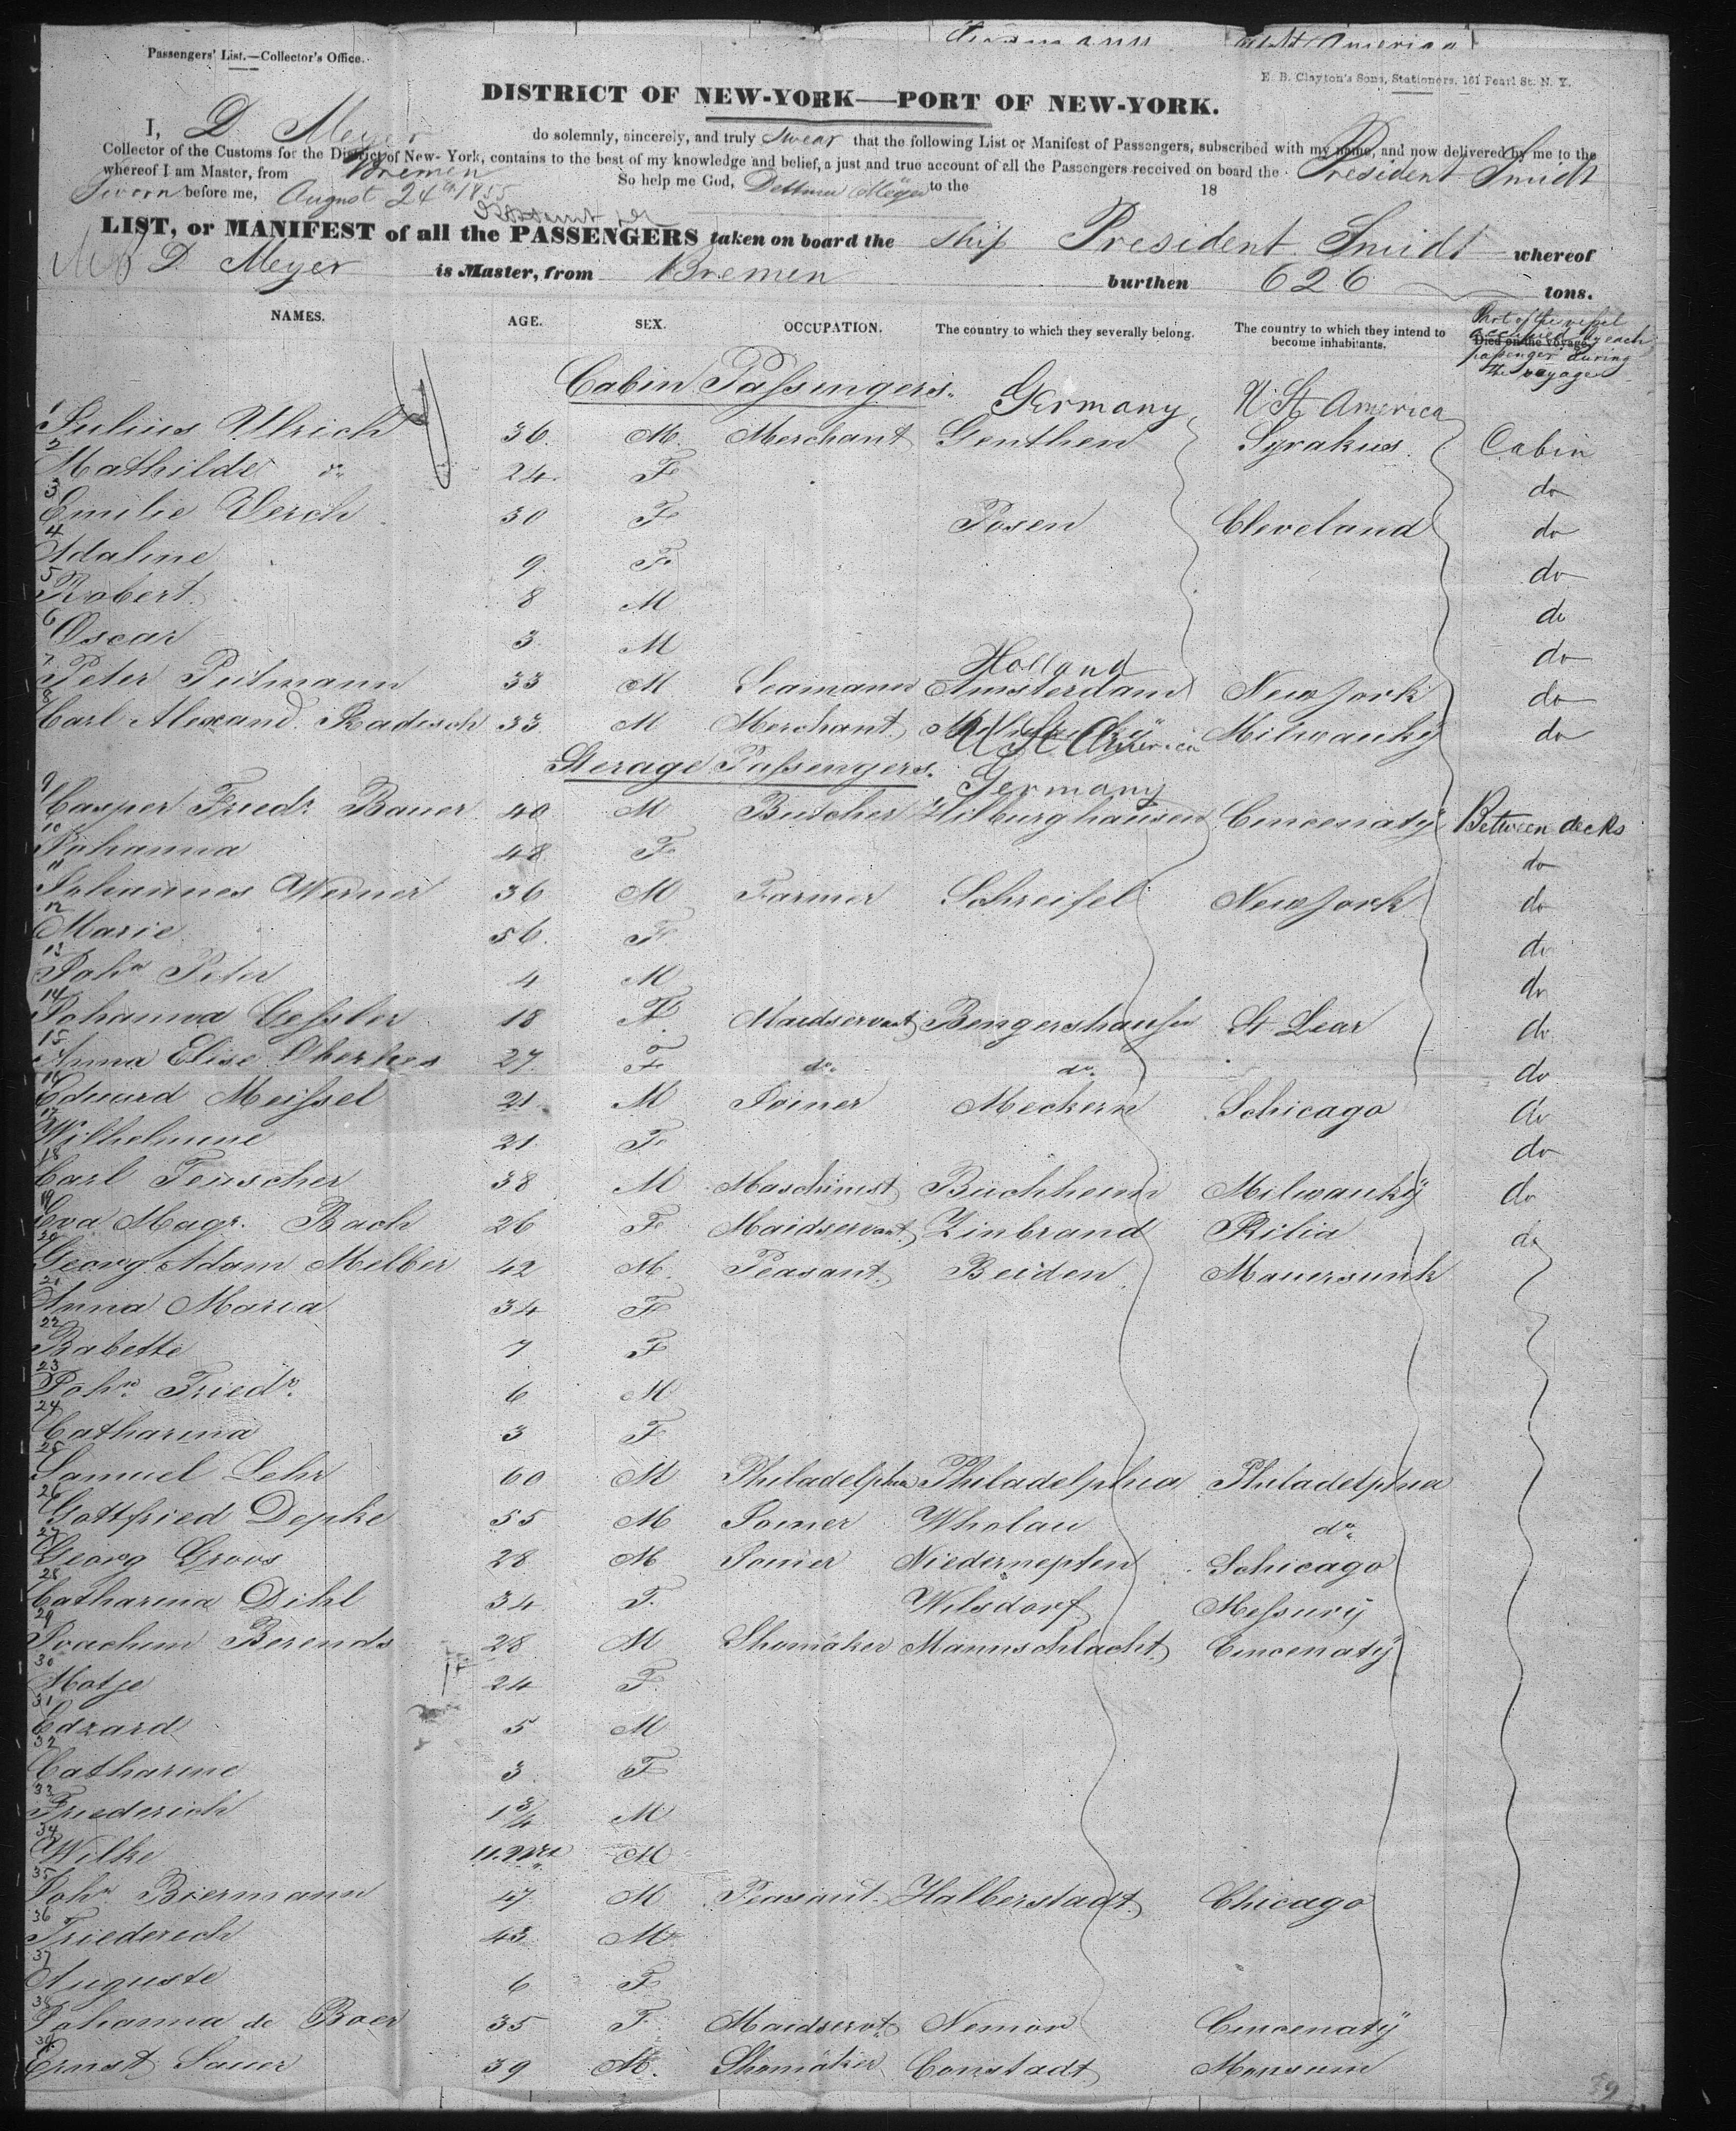 Passengers' List.—Collector's Office.
E. B. Clayton's Sons, Stationers, 161 Pearl St. N. Y.
DISTRICT OF NEW-YORK—PORT OF NEW-YORK.
I, D. Meyer do solemnly, sincerely, and truly swear that the following List or Manifest of Passengers, subscribed with my name, and now delivered by me to the
Collector of the Customs for the District of New-York, contains to the best of my knowledge and belief, a just and true account of all the Passengers received on board the President Smidt
whereof I am Master, from Bremen
Sworn before me, August 24th 1855 So help me God, Dettmer Meyer to the 18
LIST, or MANIFEST of all the PASSENGERS taken on board the ship President Smidt whereof
D. Meyer is Master, from Bremen burthen 626 tons.
NAMES. AGE. SEX. OCCUPATION. The country to which they severally belong. The country to which they intend to become inhabitants. Died on the voyage. Part of the vessel occupied by each passenger during the voyage
Cabin Passengers. Germany U St America
1 Julius Ulrich 36. M. Merchant Genthen Syrakus. Cabin
2 Mathilde do 24. F do
3 Emilie Verch 30 F Posen Cleveland do
4 Adaline 9. F. do
5 Robert 8 M do
6 Oscar 3. M do
Holland
7 Peter Putmann 33 M Seamann Amsterdam New York do
8 Carl Alexand. Radisch 33. M Merchant U St America Milwauky do
Sterage Passengers. Germany
9 Casper Friedr. Bauer 40 M Butcher Hilburghausen Cincenaty Between decks
10 Johanna 48. F do
11 Johannes Werner 36 M Farmer Schreifel New York do
12 Marie 56. F do
13 John Peter 4 M do
14 Johanna Gessler 18 F. Maidservant Bengershausen St Lear do
15 Anna Elise 27. F do. do. do
16 Eduard Meissel 21. M Joiner Meckern Schicago do
17 Wilhelmine 21. F. do
18 Carl Teuscher 38 M Maschinist Buchheim Milwauky do
19 Eva Magr. Bach 26 F Maidservant Zinbrand Rilia do
20 Georg Adam Melber 42 M. Peasant. Beiden Mauersunk
21 Anna Maria 34 F
22 Babette 7 F
23 John. Friedr. 6 M
24 Catharina 3 F
25 Samuel Lehr 60 M Philadelphia Philadelphia Philadelphia
26 Gottfried Depke 55 M Joiner Wholau do.
27 Georg Groos 28 M Joiner Niedernepfen Schicago
28 Catharina Dihl 34 F. Wilsdorf Messury
29 Joachim Berends 28 M Shomaker Mannschlacht Cincenaty
30 Hotje 24 F.
31 Edzard 5 M
32 Catharine 3 F
33 Friederich 1 3/4 M
34 Wilke M
35 John Biermann 47. M Peasant Halberstadt Chicago
36 Friederich 43 M
37 Auguste 6 F
38 Johanna de Boer 35 F. Maidservt. Nemor Cincenaty
39 Ernst Sauer 39 M. Shomaker Constadt Monsum